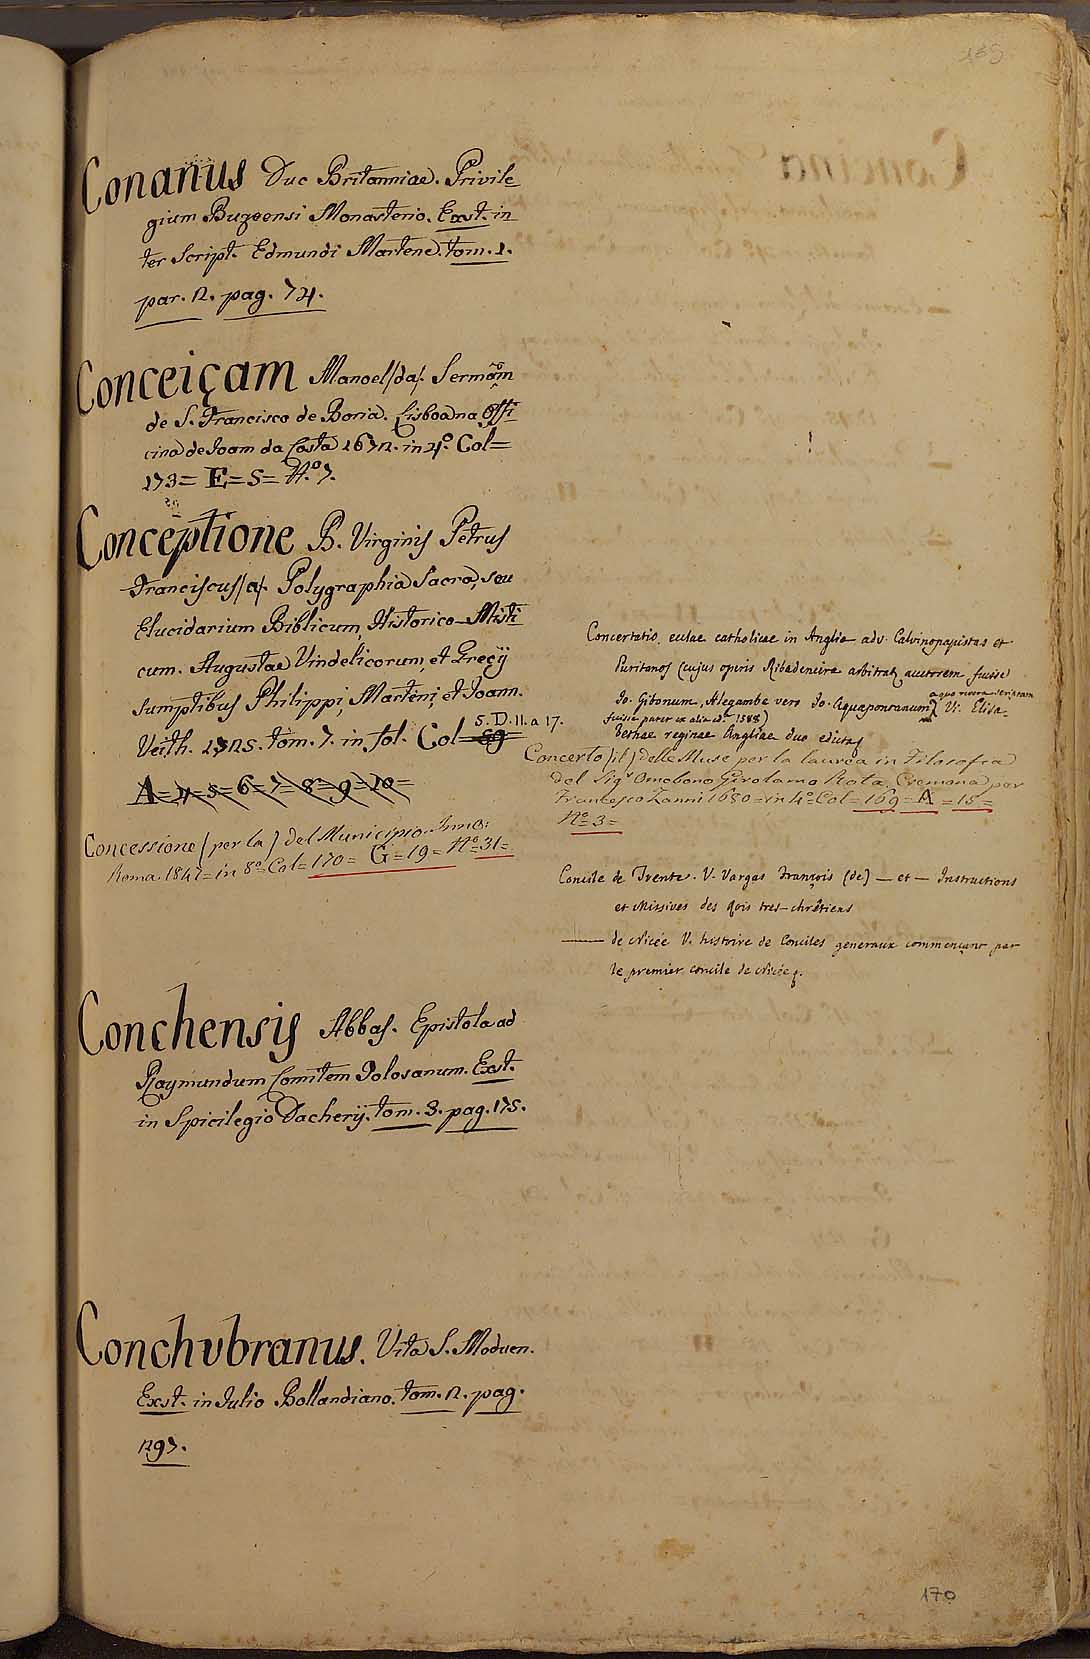 Conanus Duc Britanniae. Privile
gium Buzoensi Monasterio. Exst. in
ter Script. Edmundi Martene. tom. 1.
par. 2. pag. 74.
Conceiçam Manoel /da/. Sermam
de S. Francisco de Boria. Lisboa na Offi
cina de Joam da Costa 1672. in 4º. Col=
173= E=5= Nº. 7.
Conceptione B. Virginis Petrus
Franciscus /a/. Polygraphia Sacra, seu
Elucidarium Biblicum, Historico-Misti
cum. Augustae Vindelicorum, et Greçij
sumptibus Philippi, Martini, et Joann.
Veith. 1725. tom. 7. in fol. Col= 59
5. D. 11. a 17.
A=4=5=6=7=8=9=10=
Concessione (per la) del Municipio. Inno:
Roma 1847=in 8º=Col=170= G=19= Nº=31=
Conchensis Abbas. Epistola ad
Raymundum Comitem Tolosanum. Exst.
in Spicilegio Dacherij. tom. 3. pag. 175.
Conchubranus. Vita S. Moduen.
Exst. in Julio Bollandiano. tom. 2. pag.
297.
Concertatio eculae catholicae in Anglia adv. Calvinopapistas et
Puritanos (cujus operis Ribadeneira arbitratq auctorem fuisse
Jo. Gibonum, Alegambe vero Jo. Aquapontanum
fuisse pater ex alia edit. 1588) V. Elisa-
bethae reginae Angliae duo edicta
Concerto (il) delle Muse per la laurea in Filosofia
del Sigr Omobono Girolamo Rota, Cremona per
Francesco Zanni 1680=in 4º=Col=169= A=15=
Nº=3=
Concile de Trente. V. Vargas François (de) — et — Instructions
et Missives des Rois tres-chrêtiens
—— de Nicée V. histoire de Conciles generaux commençant par
le premier concile de Nicée.
170